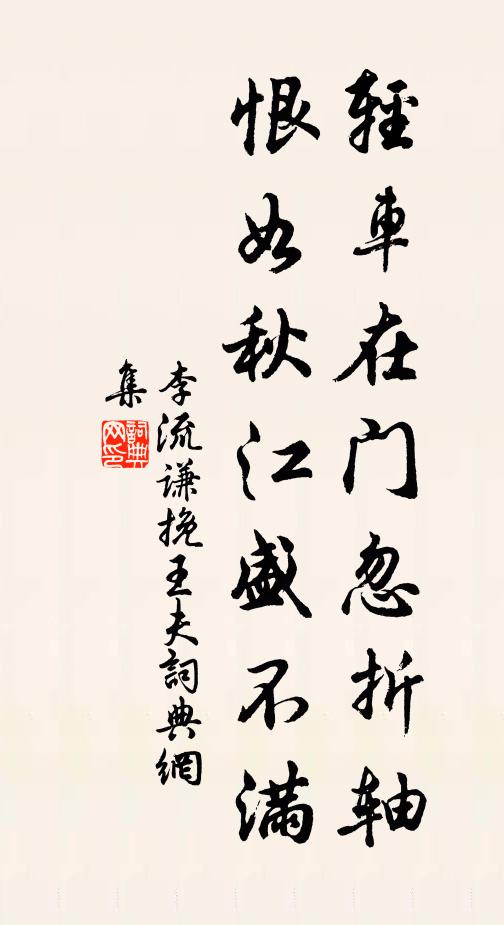 輕車在門忽折軸
恨如秋江盛不满
李流谦挽王夫詞典網
集
詞典
网印